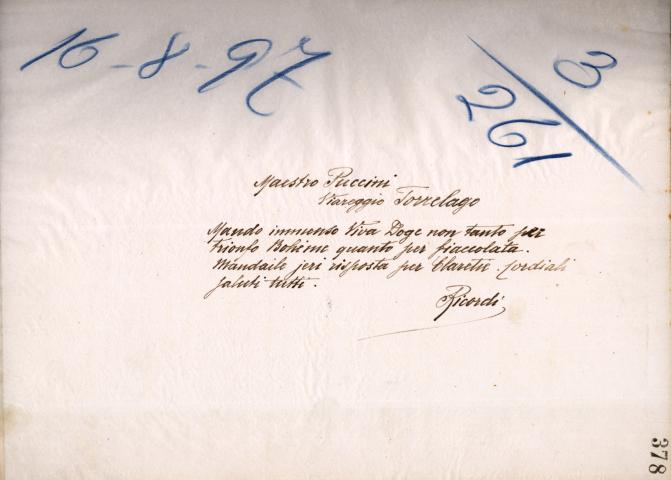 16-8-97
3/261
Maestro Puccini
Viareggio Torrelago
Mando immenso Viva Doge non tanto per
trionfo Bohème quanto per fiaccolata.
Mandaile jeri risposta per Claretie. Cordiali
saluti tutti.
Ricordi
378